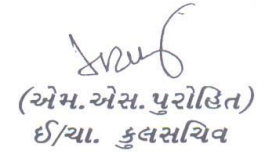 (એમ.એસ. પુરોહિત)
ઈ/ચા. કુલસચિવ